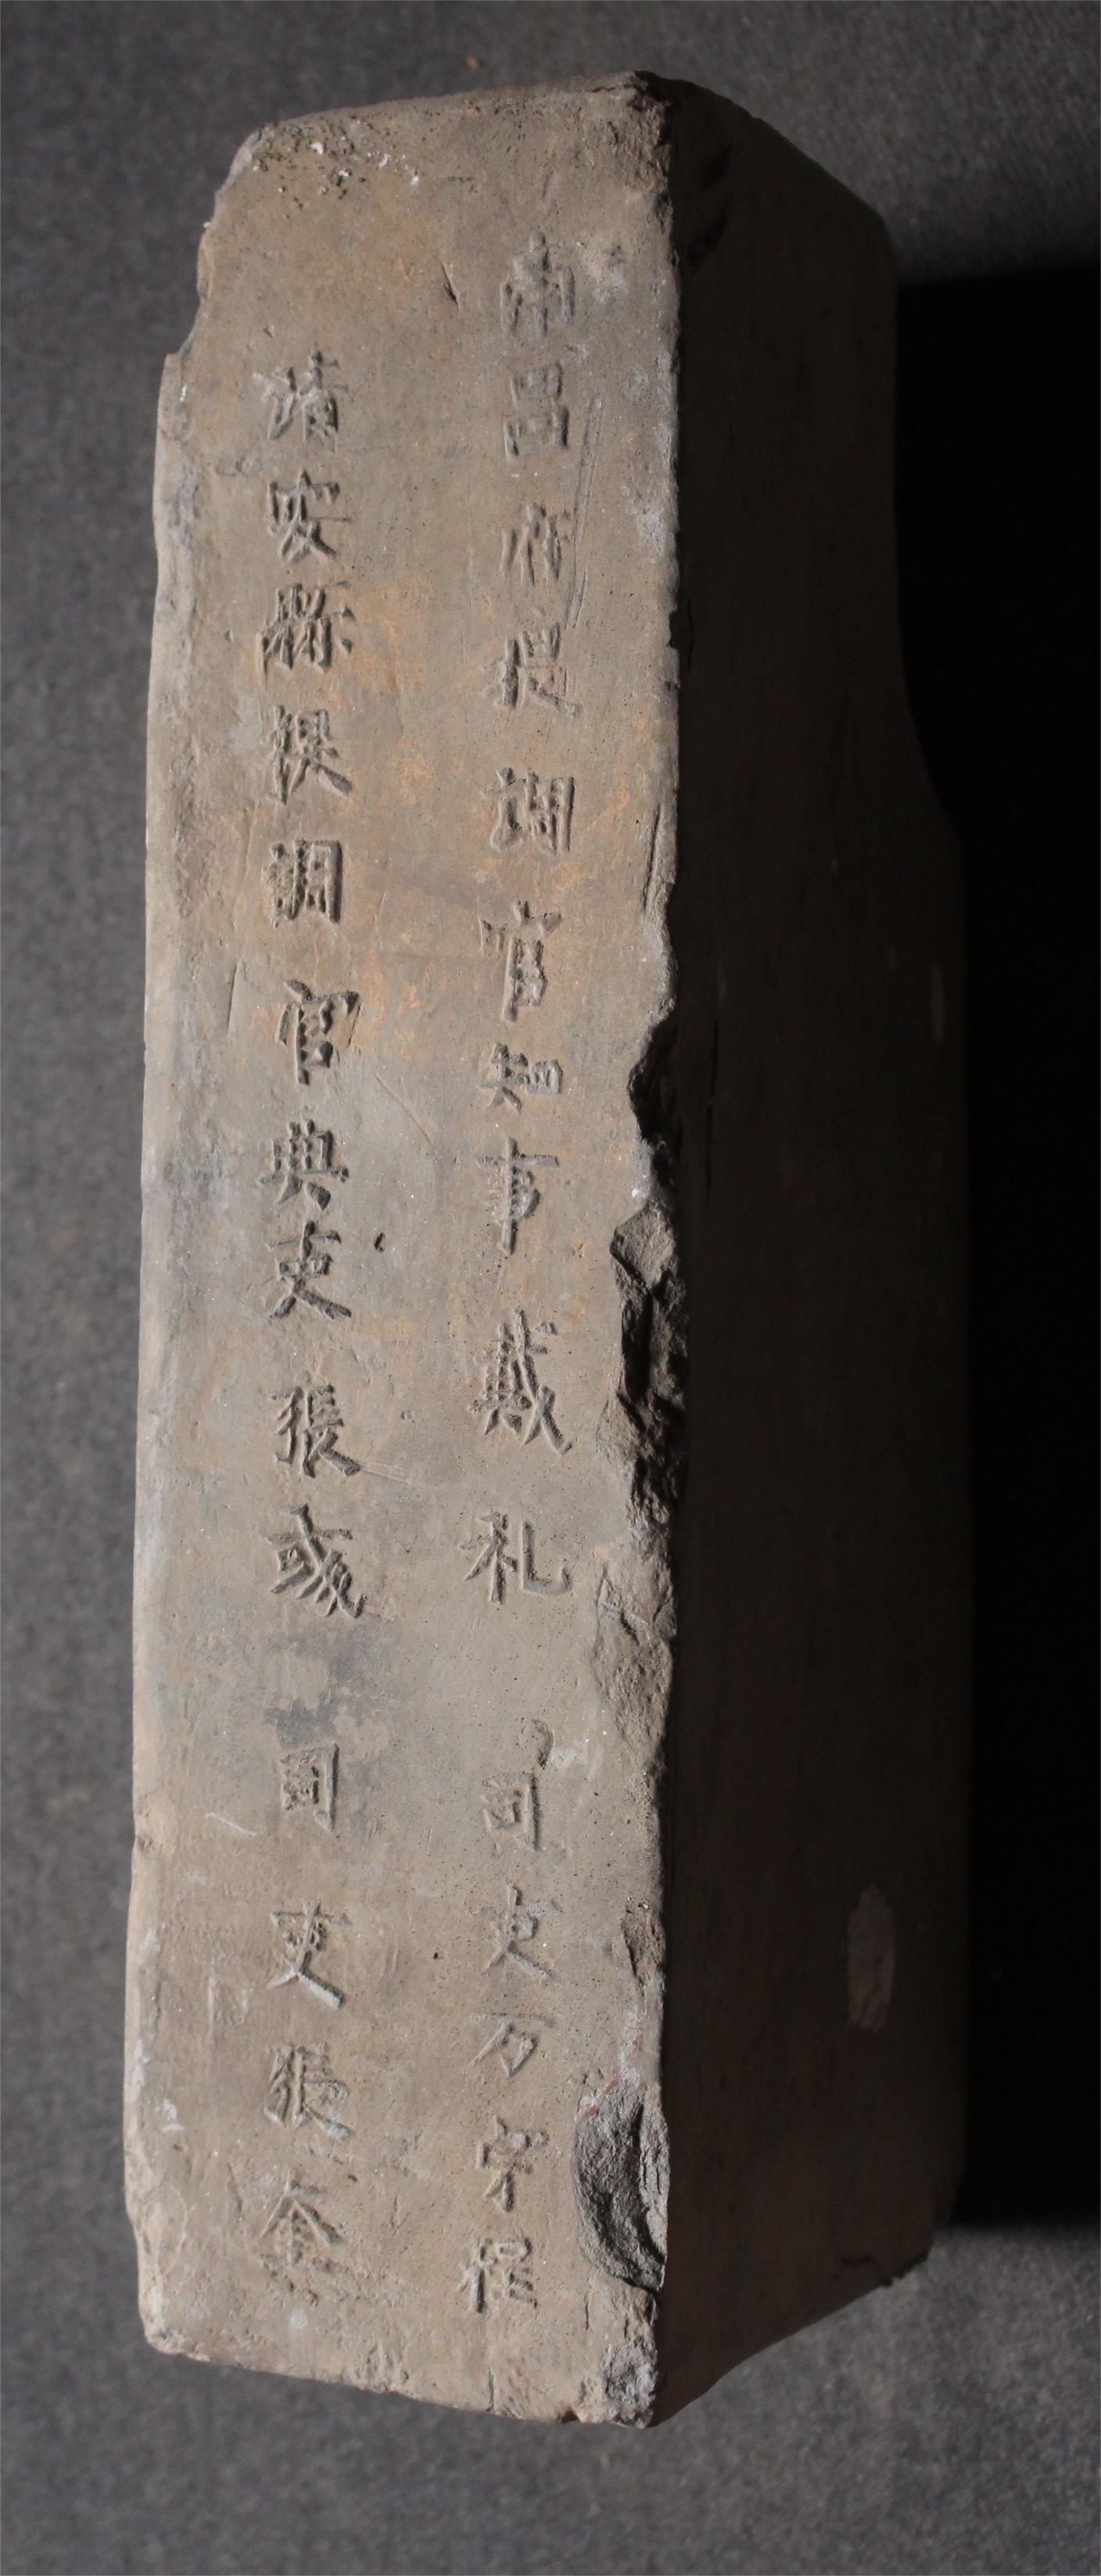 南昌府提調官知事戴礼　司吏万宇程
靖安縣提調官典吏張彧　司吏張奎